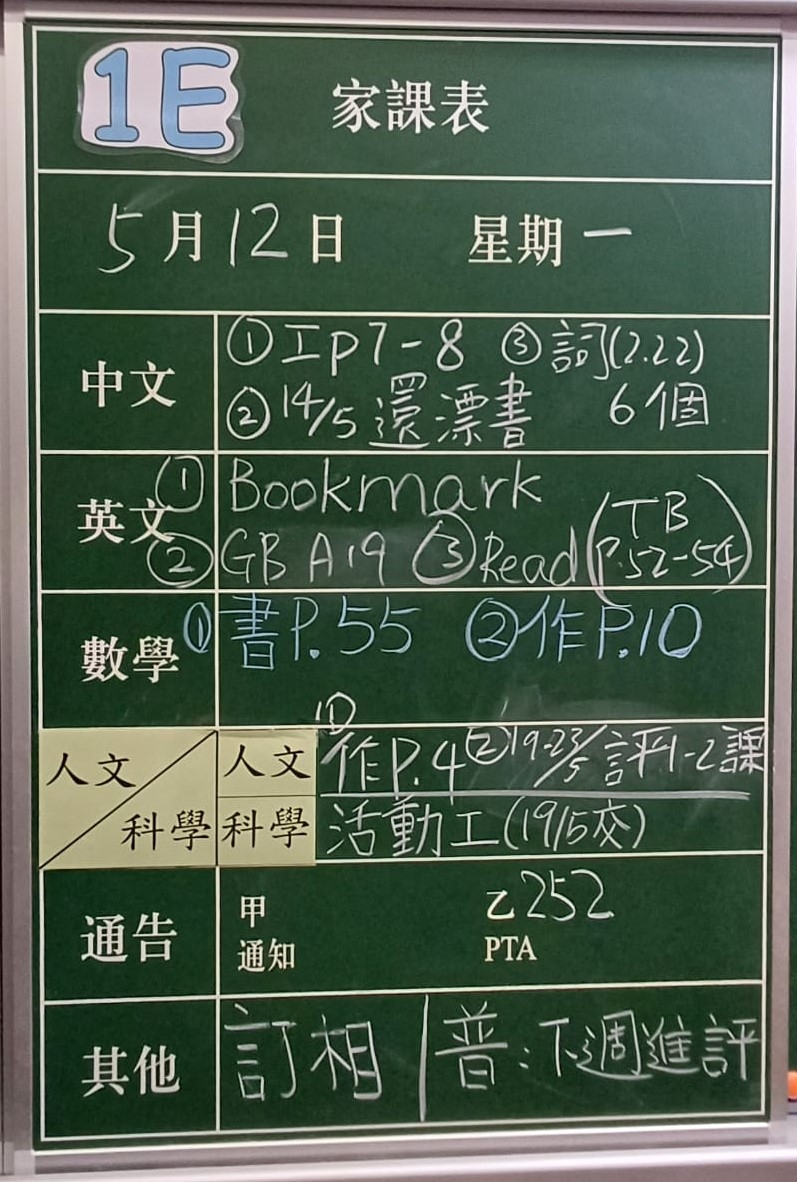 1E 家課表
5月12日 星期一
中文 ①工p7-8 ③詞(2.22)
②14/5還漂書 6個
英文 ① Bookmark
② GB A19 ③ Read (TB P.52-54)
數學 ①書P.55 ②作P.10
人文/科學 人文 ①作P.4 ②19-23/5評1-2課
科學 活動工(19/5交)
通告 甲 乙252
通知 PTA
其他 訂相 | 普:下週進評